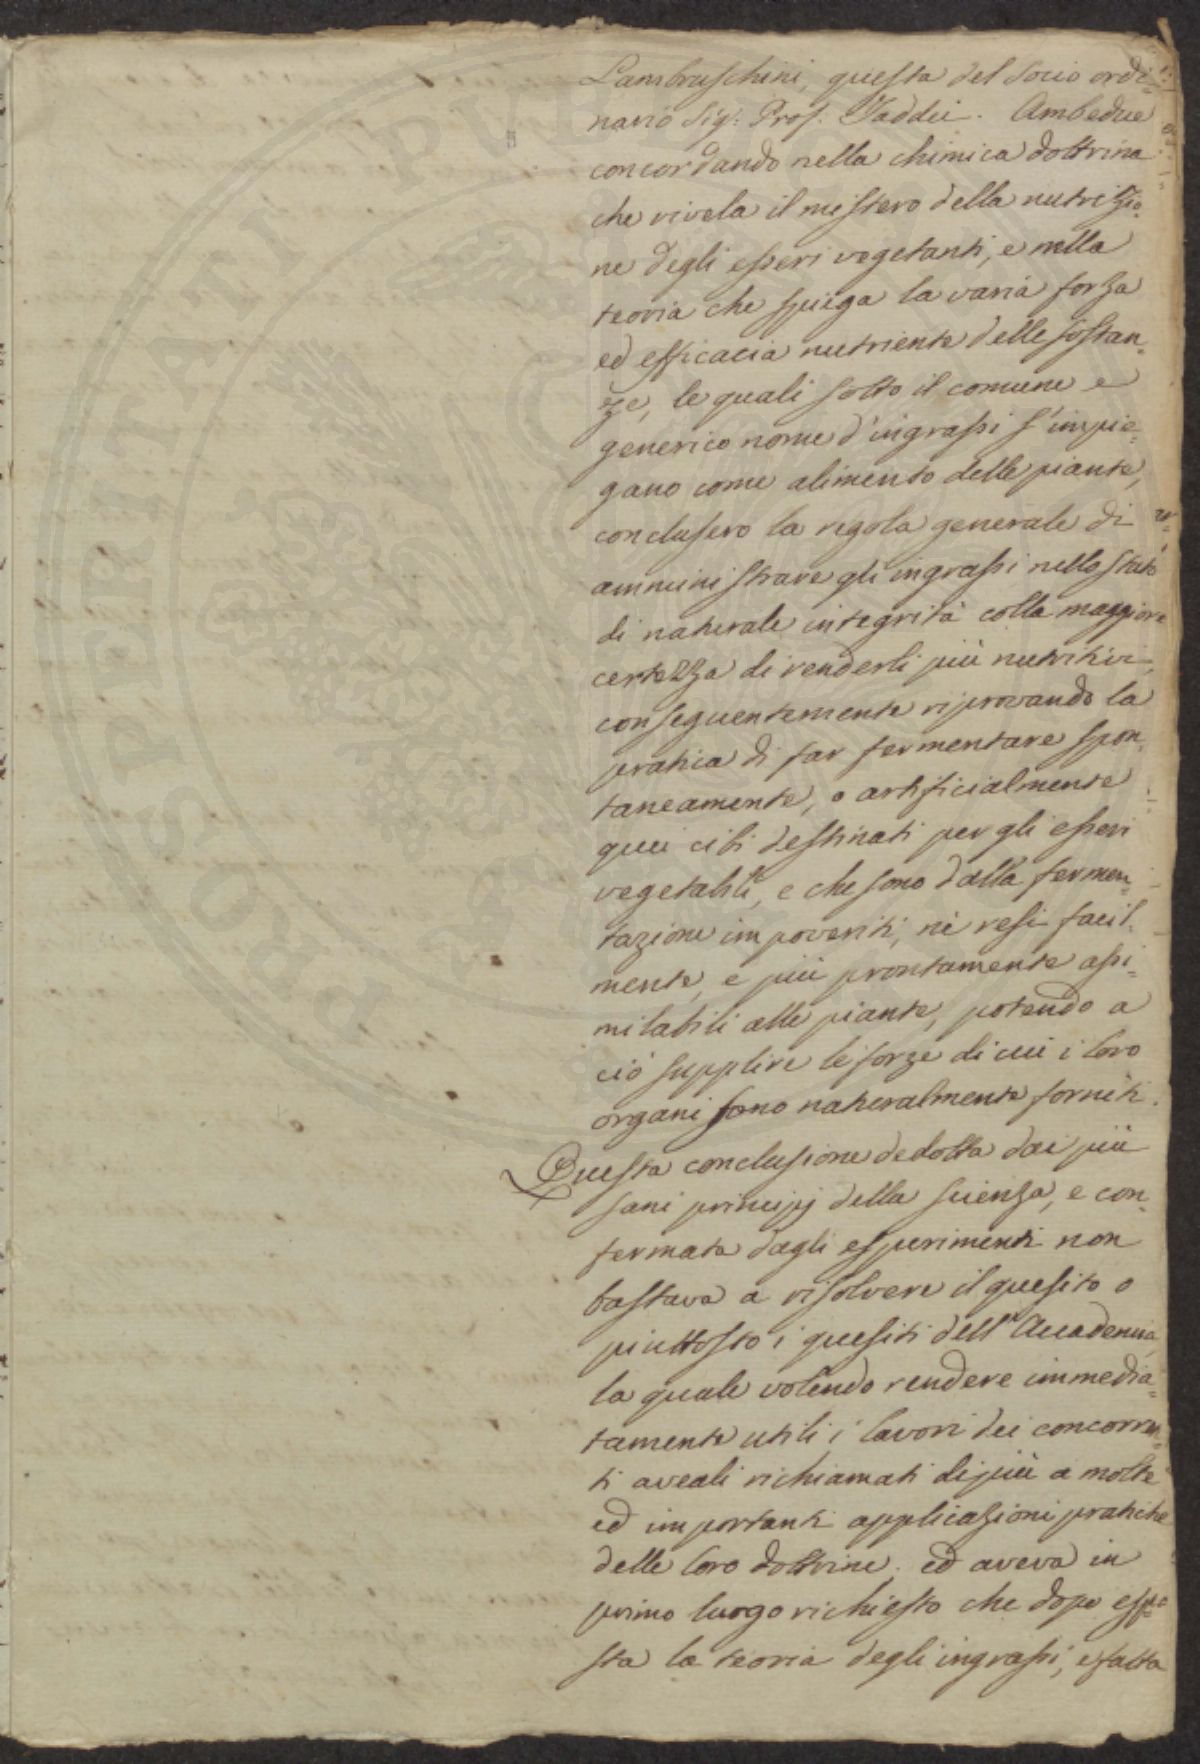 Lambruschini, questa del Socio ordi=
nario Sig: Prof: Taddei. Ambedue
concordando nella chimica dottrina
che rivela il mistero della nutrizio=
ne degli esseri vegetanti, e nella
teoria che spiega la varia forza
ed efficacia nutriente delle sostan=
ze, le quali sotto il comune e
generico nome d'ingrassi s'impie=
gano come alimento delle piante,
conclusero la regola generale di
amministrare gl'ingrassi nello stato
di naturale integrità colla maggiore
certezza di renderli più nutritivi,
conseguentemente riprovando la
pratica di far fermentare spon=
taneamente, o artificialmente
quei cibi destinati per gli esseri
vegetabili, e che sono dalla fermen=
tazione impoveriti, nè resi facil=
mente, e più prontamente assi=
milabili alle piante, potendo a
ciò supplire le forze di cui i loro
organi sono naturalmente forniti.
Questa conclusione dedotta dai più
sani principj della scienza, e con=
fermata dagli esperimenti non
bastava a risolvere il quesito o
piuttosto i quesiti dell'Accademia,
la quale volendo rendere immedia=
tamente utili i lavori dei concorren=
ti aveali richiamati di più a molte
ed importanti applicazioni pratiche
delle loro dottrine. ed aveva in
primo luogo richiesto che dopo espo=
sta la teoria degli ingrassi, e fatta
PROSPERITATI PUBLICAE